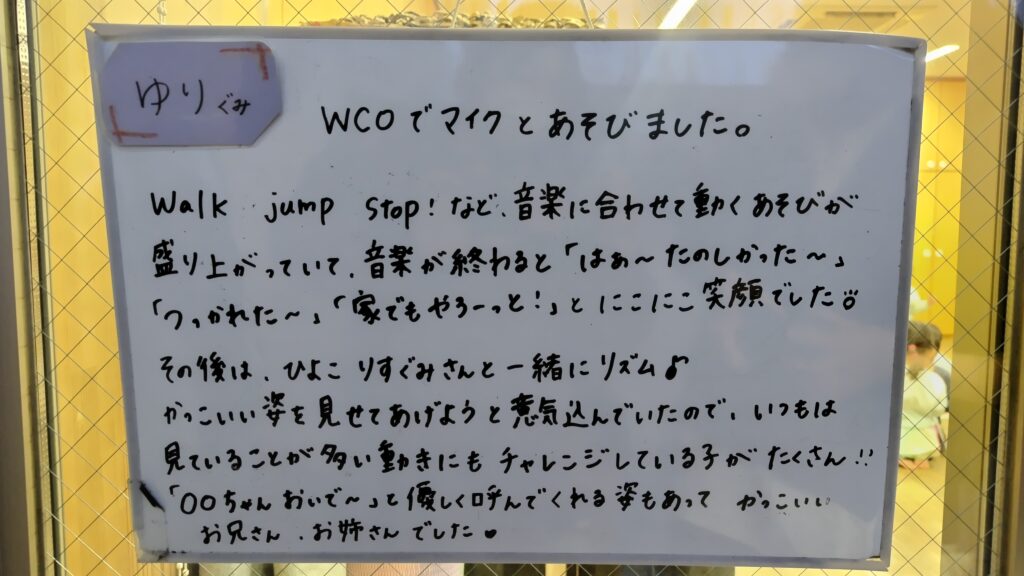 ゆりぐみ
WCOでマイクとあそびました。
Walk jump stop!など、音楽に合わせて動くあそびが
盛り上がっていて、音楽が終わると「はぁ〜たのしかった〜」
「つっかれた〜」「家でもやろーっと!」とにこにこ笑顔でした
その後は、ひよこ りすぐみさんと一緒にリズム♪
かっこいい姿を見せてあげようと意気込んでいたので、いつもは
見ていることが多い動きにもチャレンジしている子がたくさん!!
「〇〇ちゃんおいで〜」と優しく呼んでくれる姿もあって かっこいい
お兄さん、お姉さんでした♥